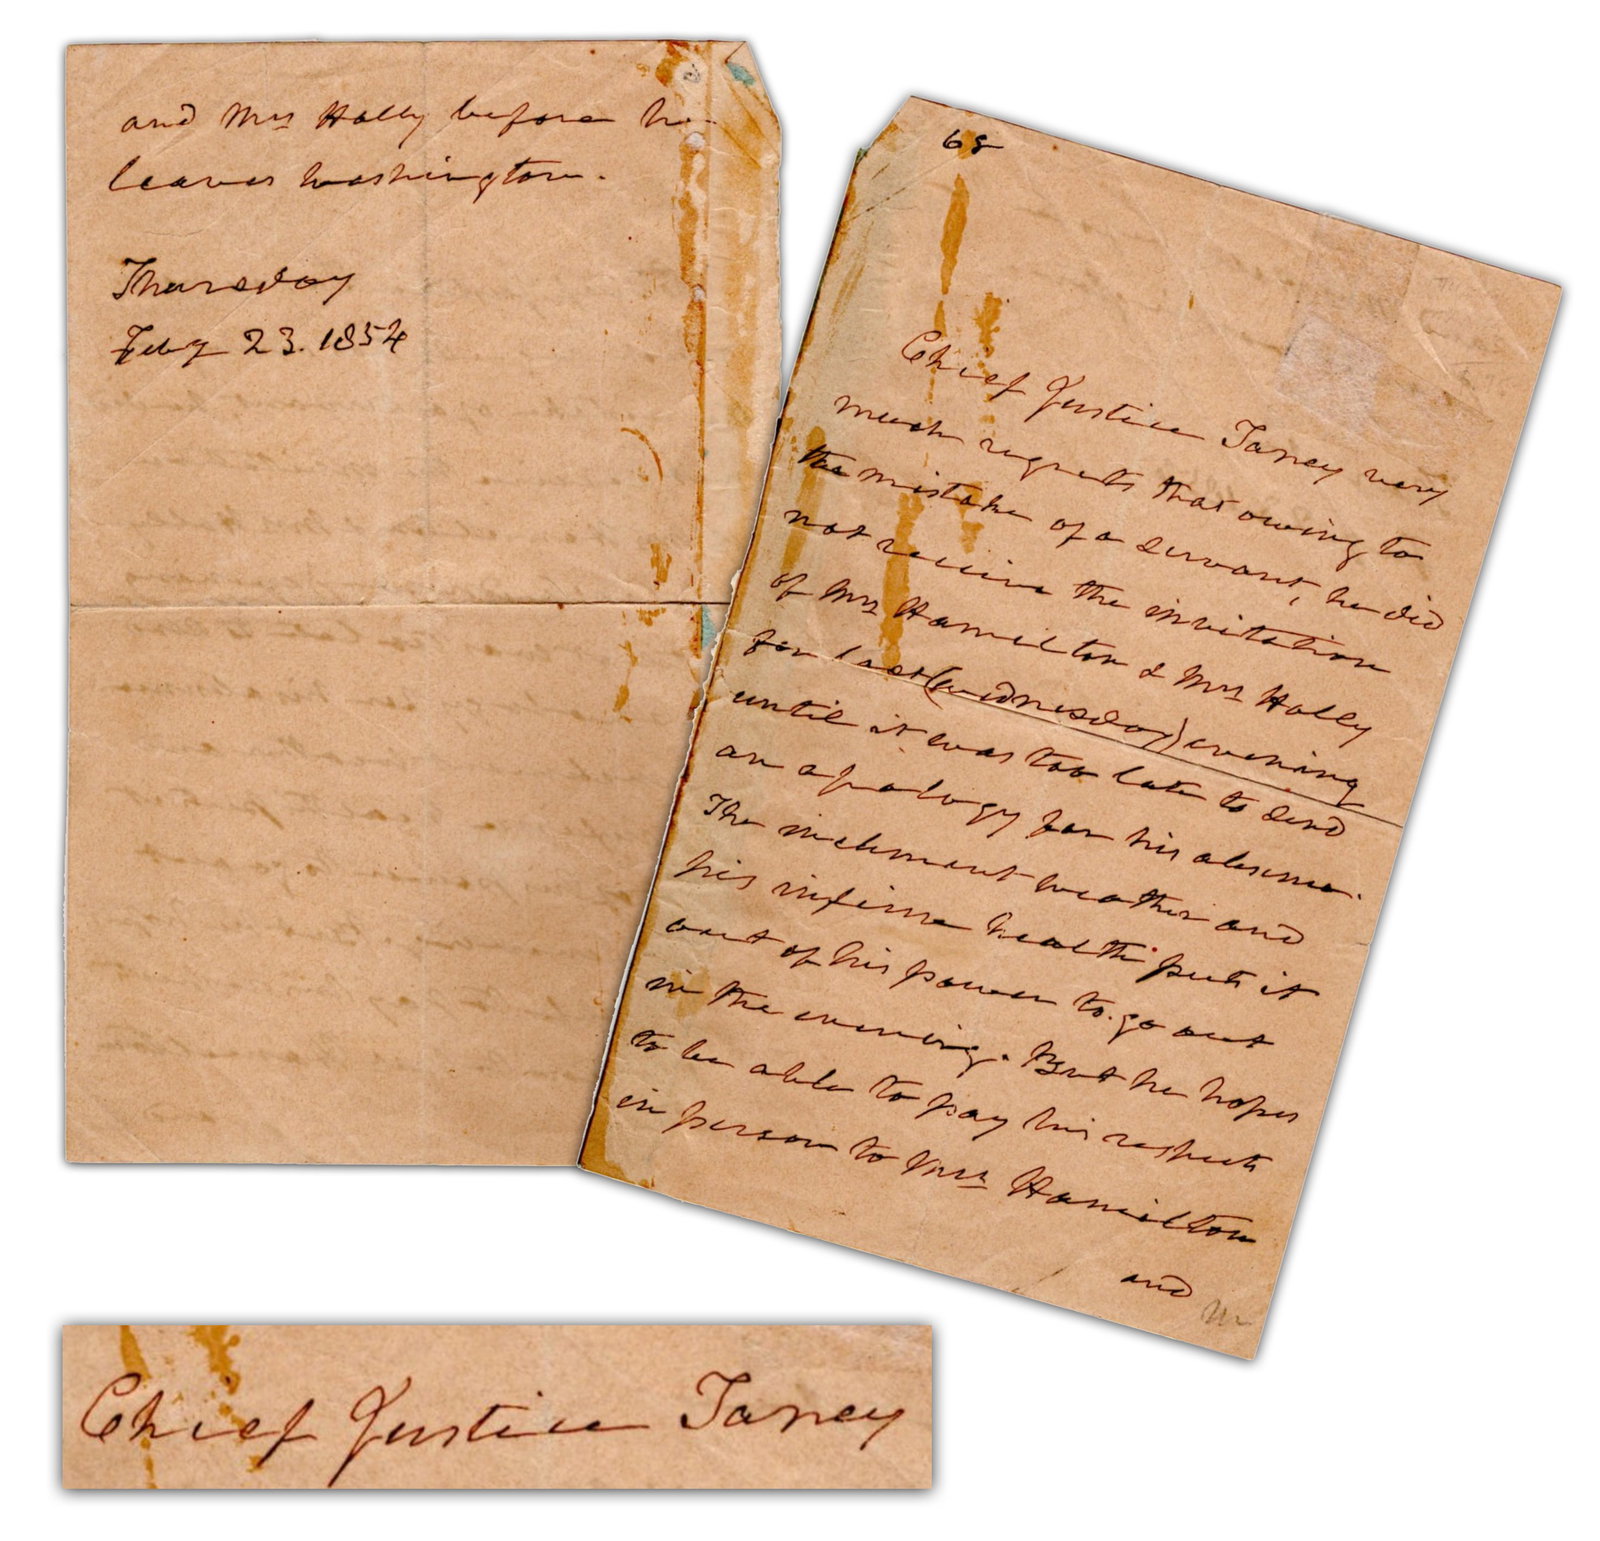 68
Chief Justice Taney very
much regrets that owing to
the mistake of a servant, he did
not receive the invitation
of Mrs Hamilton & Mrs Holly
for last (wednesday) evening
until it was too late to send
an apology for his absence.
The inclement weather and
his infirm health put it
out of his power to go out
in the evening. But he hopes
to be able to pay his respects
in person to Mrs Hamilton
and
and Mrs Holly before he
leaves Washington.
Thursday
Feby 23. 1854
Chief Justice Taney